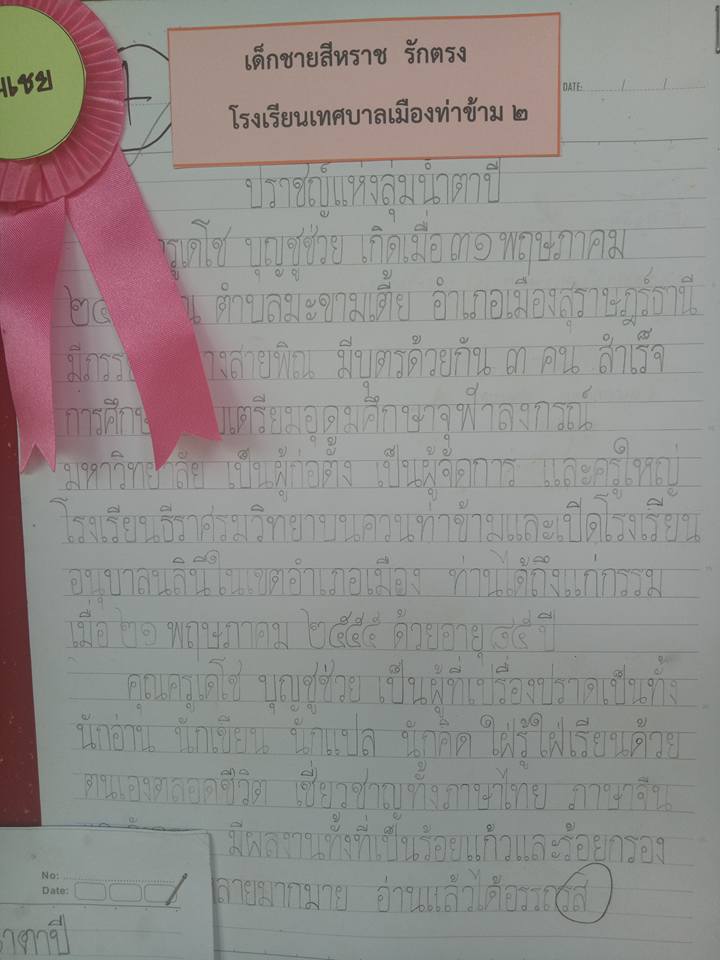 มเชย
เด็กชายสีหราช รักตรง
โรงเรียนเทศบาลเมืองท่าข้าม ๒
DATE: / /
ปราชญ์แห่งลุ่มน้ำตาปี
รูเดโช บุญชูช่วย เกิดเมื่อ ๓๑ พฤษภาคม
๒๔ ณ ตำบลมะขามเตี้ย อำเภอเมืองสุราษฎร์ธานี
มีภรร างสายพิณ มีบุตรด้วยกัน ๓ คน สำเร็จ
การศึกษ บเตรียมอุดมศึกษาจุฬาลงกรณ์
มหาวิทยาลัย เป็นผู้ก่อตั้ง เป็นผู้จัดการ และครูใหญ่
โรงเรียนธีราศรมวิทยาบนควนท่าข้ามและเปิดโรงเรียน
อนุบาลนลินีในเขตอำเภอเมือง ท่านได้ถึงแก่กรรม
เมื่อ ๒๑ พฤษภาคม ๒๕๕๕ ด้วยอายุ ๘๕ ปี
คุณครูเดโช บุญชูช่วย เป็นผู้ที่เปรื่องปราดเป็นทั้ง
นักอ่าน นักเขียน นักแปล นักคิด ใฝ่รู้ใฝ่เรียนด้วย
ตนเองตลอดชีวิต เชี่ยวชาญทั้งภาษาไทย ภาษาจีน
มีผลงานทั้งที่เป็นร้อยแก้วและร้อยกรอง
ลายมากมาย อ่านแล้วได้อรรถรส
No:
Date:
าตาปี